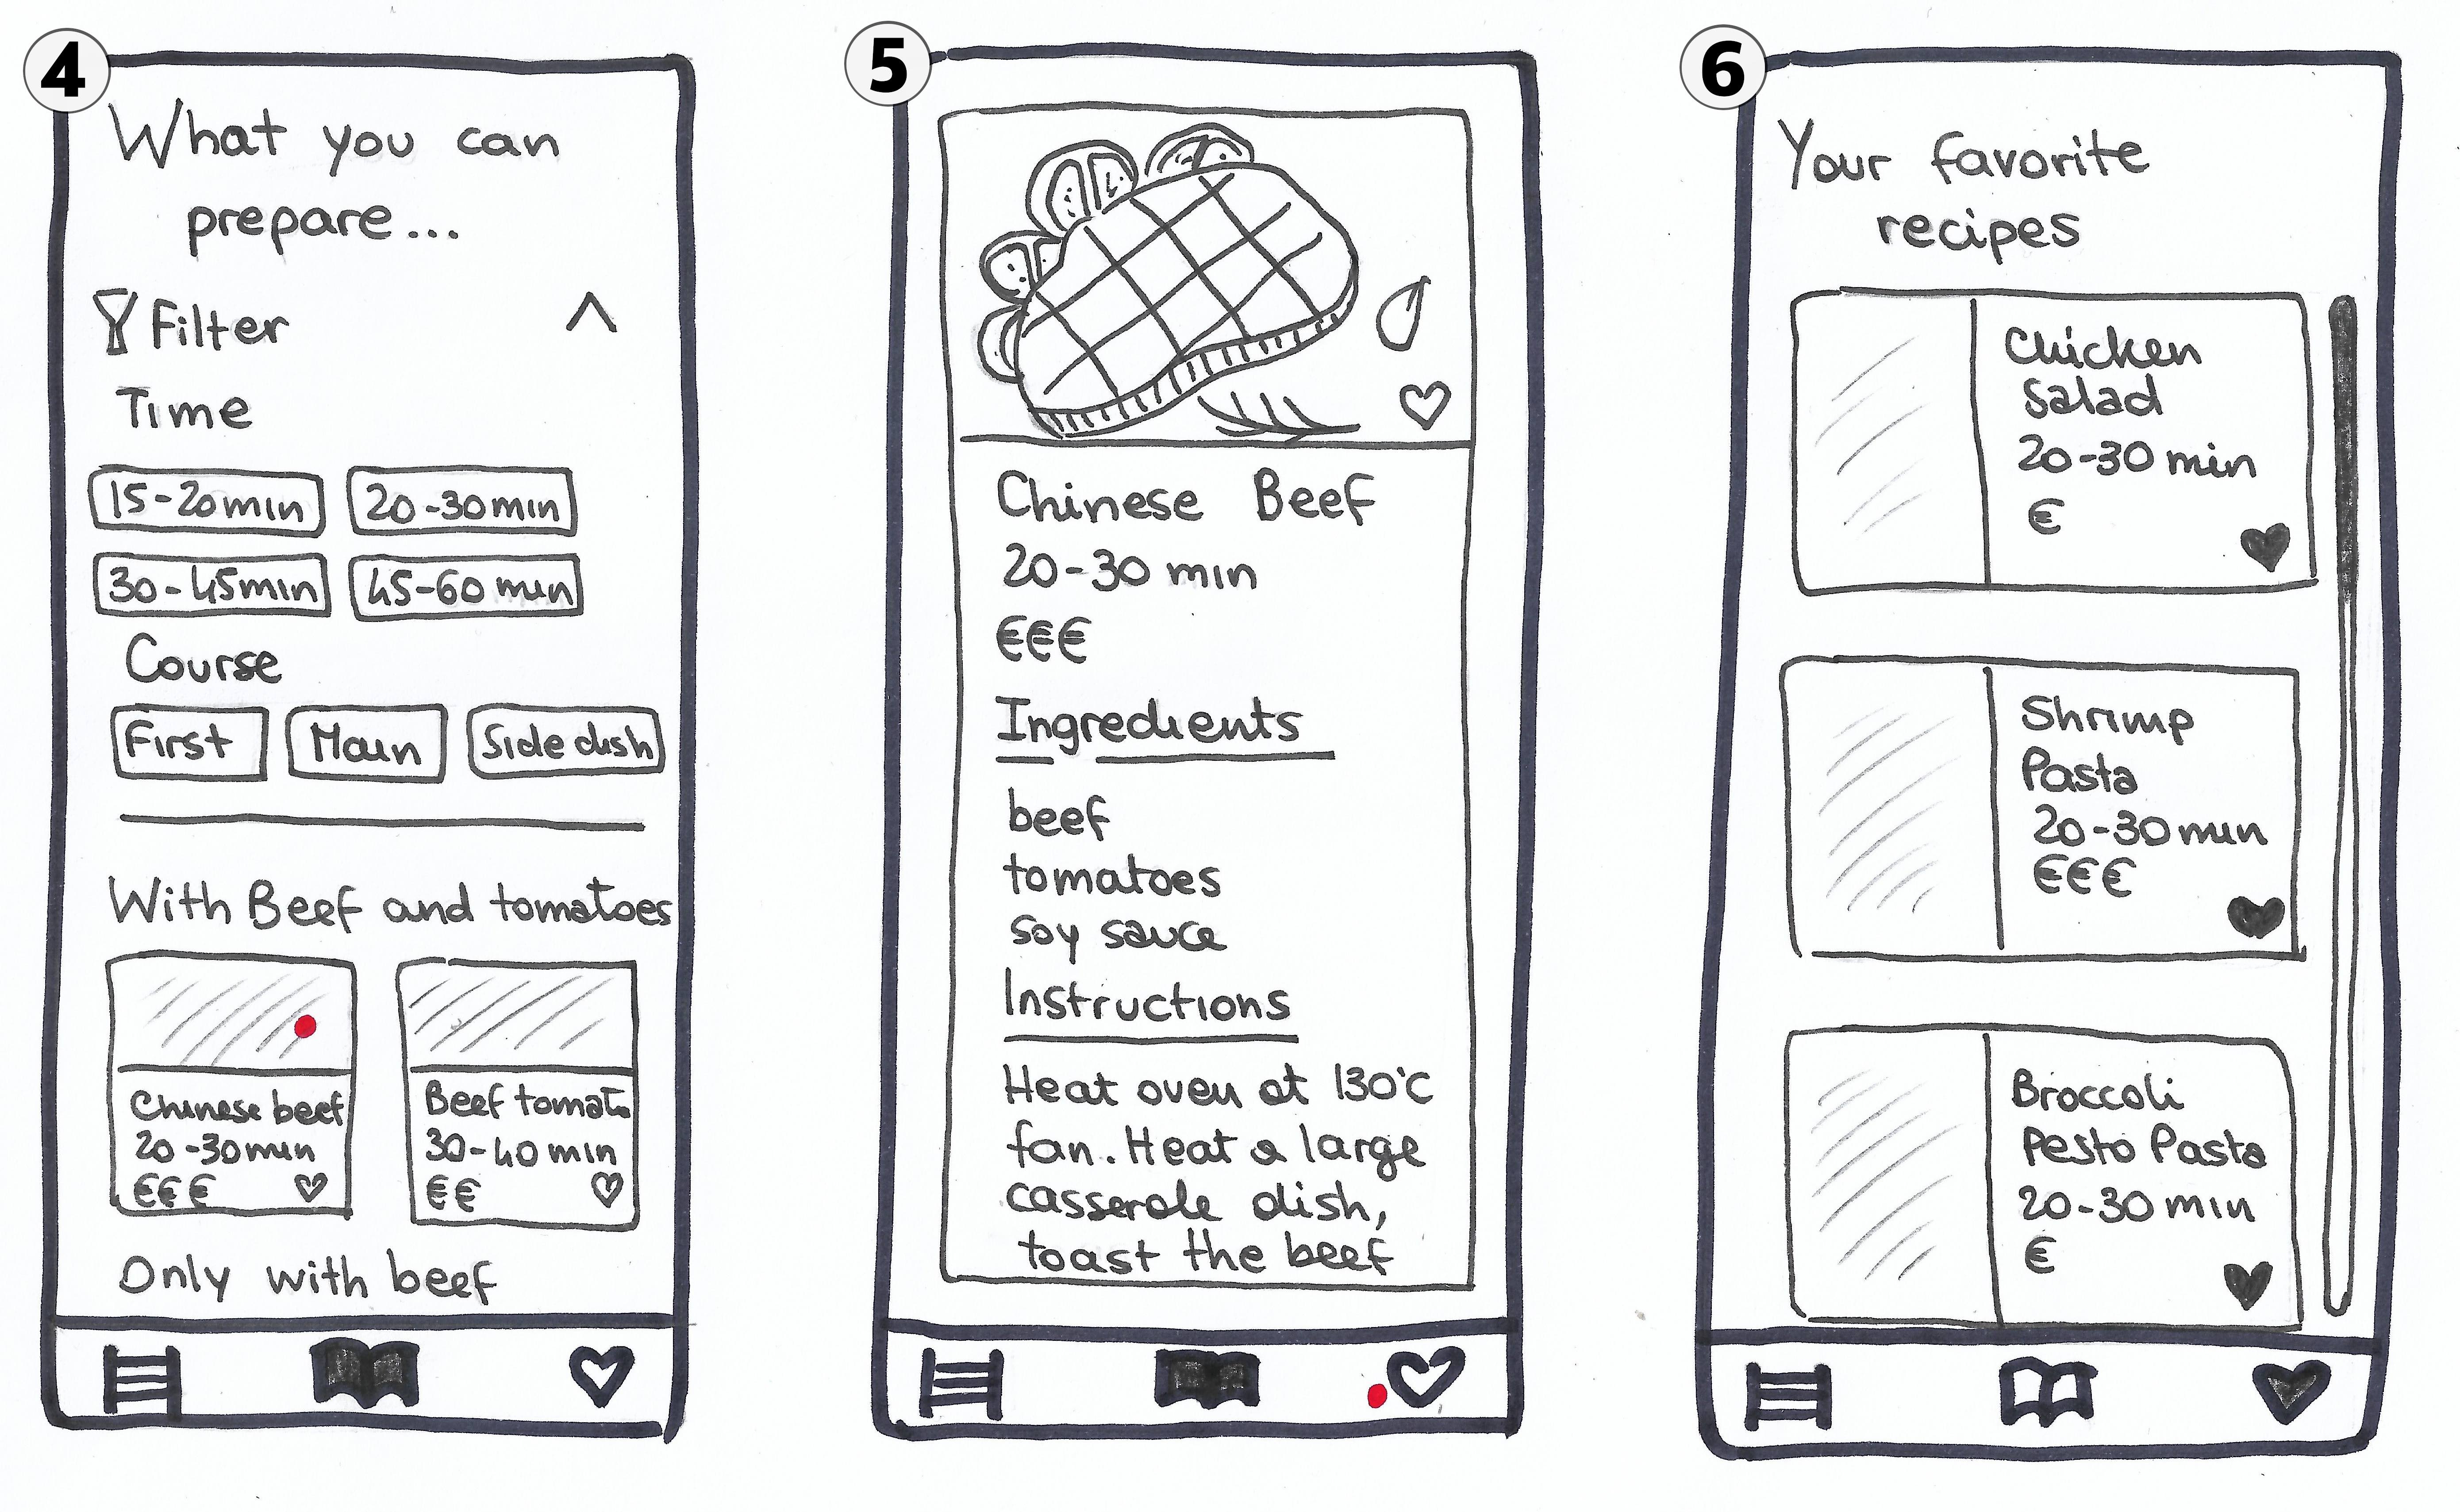 4
What you can
prepare...
Filter
Time
15-20min
20-30min
30-45min
45-60 min
Course
First
Main
Side dish
With Beef and tomatoes
Chinese beef
20-30min
€€€
Beef tomato
30-40 min
€€
Only with beef
5
Chinese Beef
20-30 min
€€€
Ingredients
beef
tomatoes
soy sauce
Instructions
Heat oven at 130°C
fan. Heat a large
casserole dish,
toast the beef
6
Your favorite
recipes
Chicken
Salad
20-30 min
€
Shrimp
Pasta
20-30 min
€€€
Broccoli
Pesto Pasta
20-30 min
€